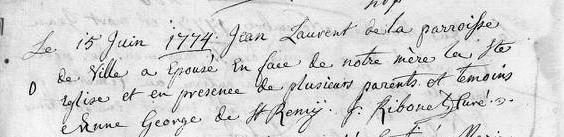 Le 15 Juin 1774. Jean Laurent de la parroisse
de ville a Epousé En face de notre mère la Ste
Eglise et en presence de plusieurs parents et temoins
Anne George de St Remÿ. f. Riboue Curé